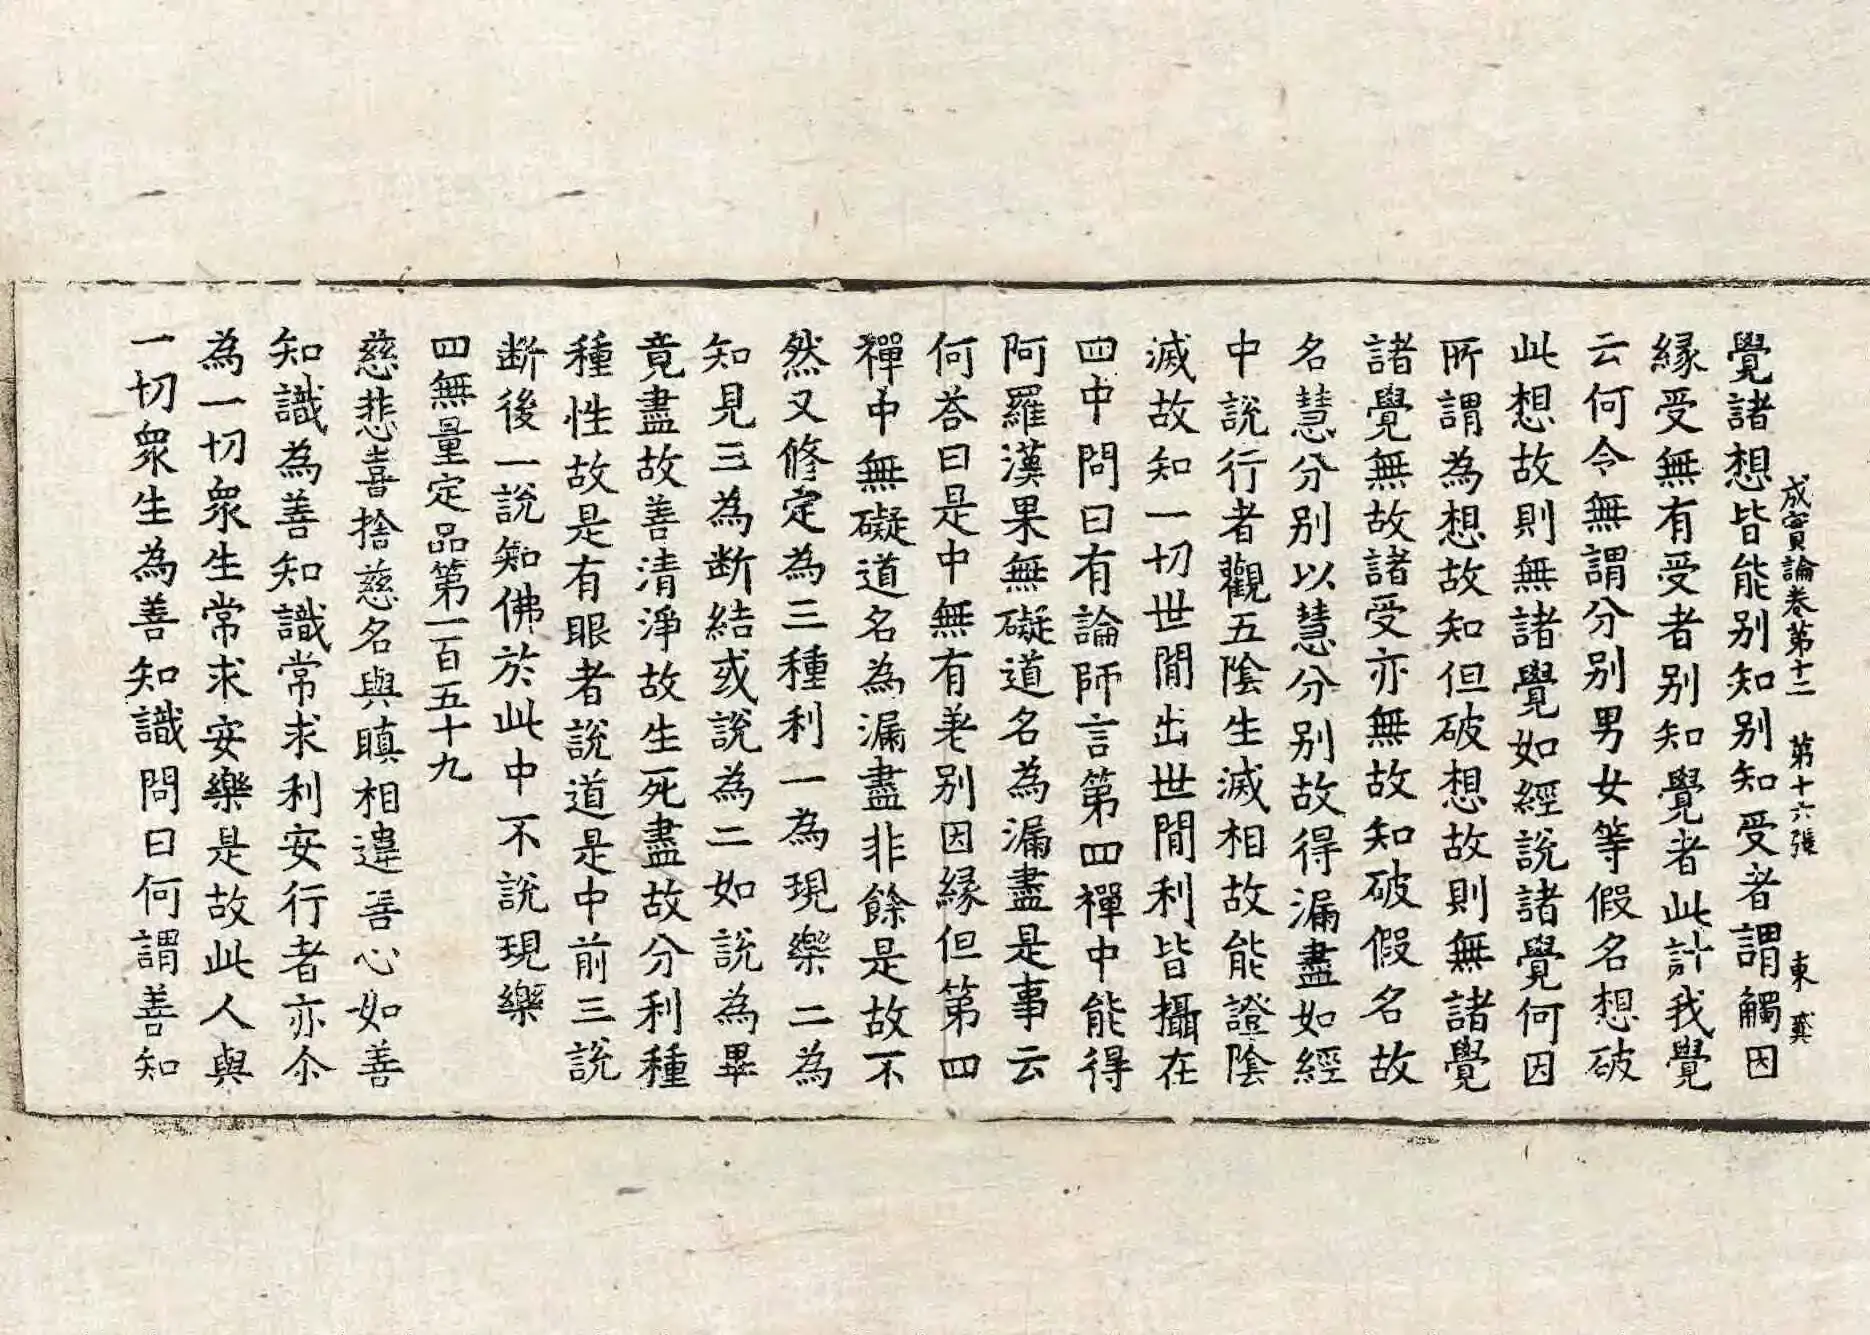 成實論卷第十二 第十六張 東 龚
覺諸想皆能别知别知受者謂觸因
緣受無有受者别知覺者此計我覺
云何令無謂分别男女等假名想破
此想故則無諸覺如經說諸覺何因
所謂為想故知但破想故則無諸覺
諸覺無故諸受亦無故知破假名故
名慧分别以慧分别故得漏盡如經
中說行者觀五陰生滅相故能證陰
滅故知一切世間出世間利皆攝在
四中問曰有論師言第四禪中能得
阿羅漢果無礙道名為漏盡是事云
何荅曰是中無有差别因緣但第四
禪中無礙道名為漏盡非餘是故不
然又修定為三種利一為現樂二為
知見三為断結或說為二如說為畢
竟盡故善清淨故生死盡故分利種
種性故是有眼者說道是中前三說
断後一說知佛於此中不說現樂
四無量定品第一百五十九
慈悲喜捨慈名與瞋相違善心如善
知識為善知識常求利安行者亦尒
為一切衆生常求安樂是故此人與
一切衆生為善知識問曰何謂善知